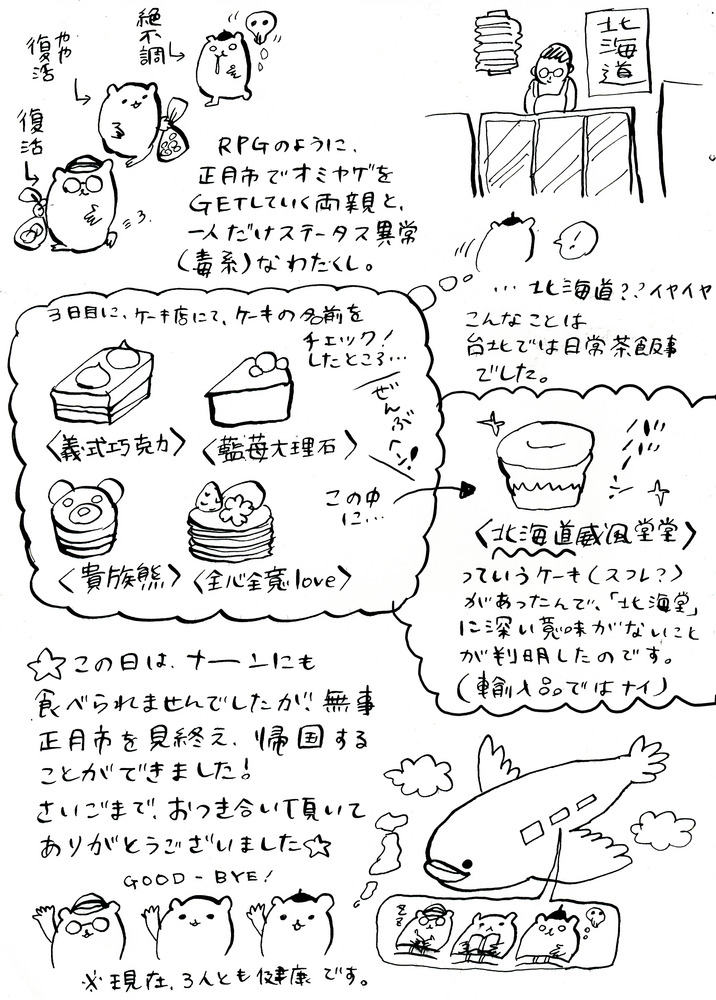 絶不調
やや
復活
復活
RPGのように、
正月市でオミヤゲを
GETしていく両親と、
一人だけステータス異常
(毒系)なわたくし。
北海道
!
… 北海道??イヤイヤ
こんなことは
台北では日常茶飯事
でした。
3日目に、ケーキ店にて、ケーキの名前を
チェック!
したところ…
〈義式巧克力〉
〈藍莓大理石〉
ぜんぶ
〈貴族熊〉
〈全心全意love〉
この中
に…
〈北海道威風堂堂〉
っていうケーキ(スフレ?)
があったんで、「北海堂」
に深い意味がないこと
が判明したのです。
(輸入品ではナイ)
☆この日は、ナーンにも
食べられませんでしたが、無事
正月市を見終え、帰国する
ことができました!
さいごまで、おつき合い頂いて
ありがとうございました☆
GOOD-BYE!
※現在、3人とも健康です。